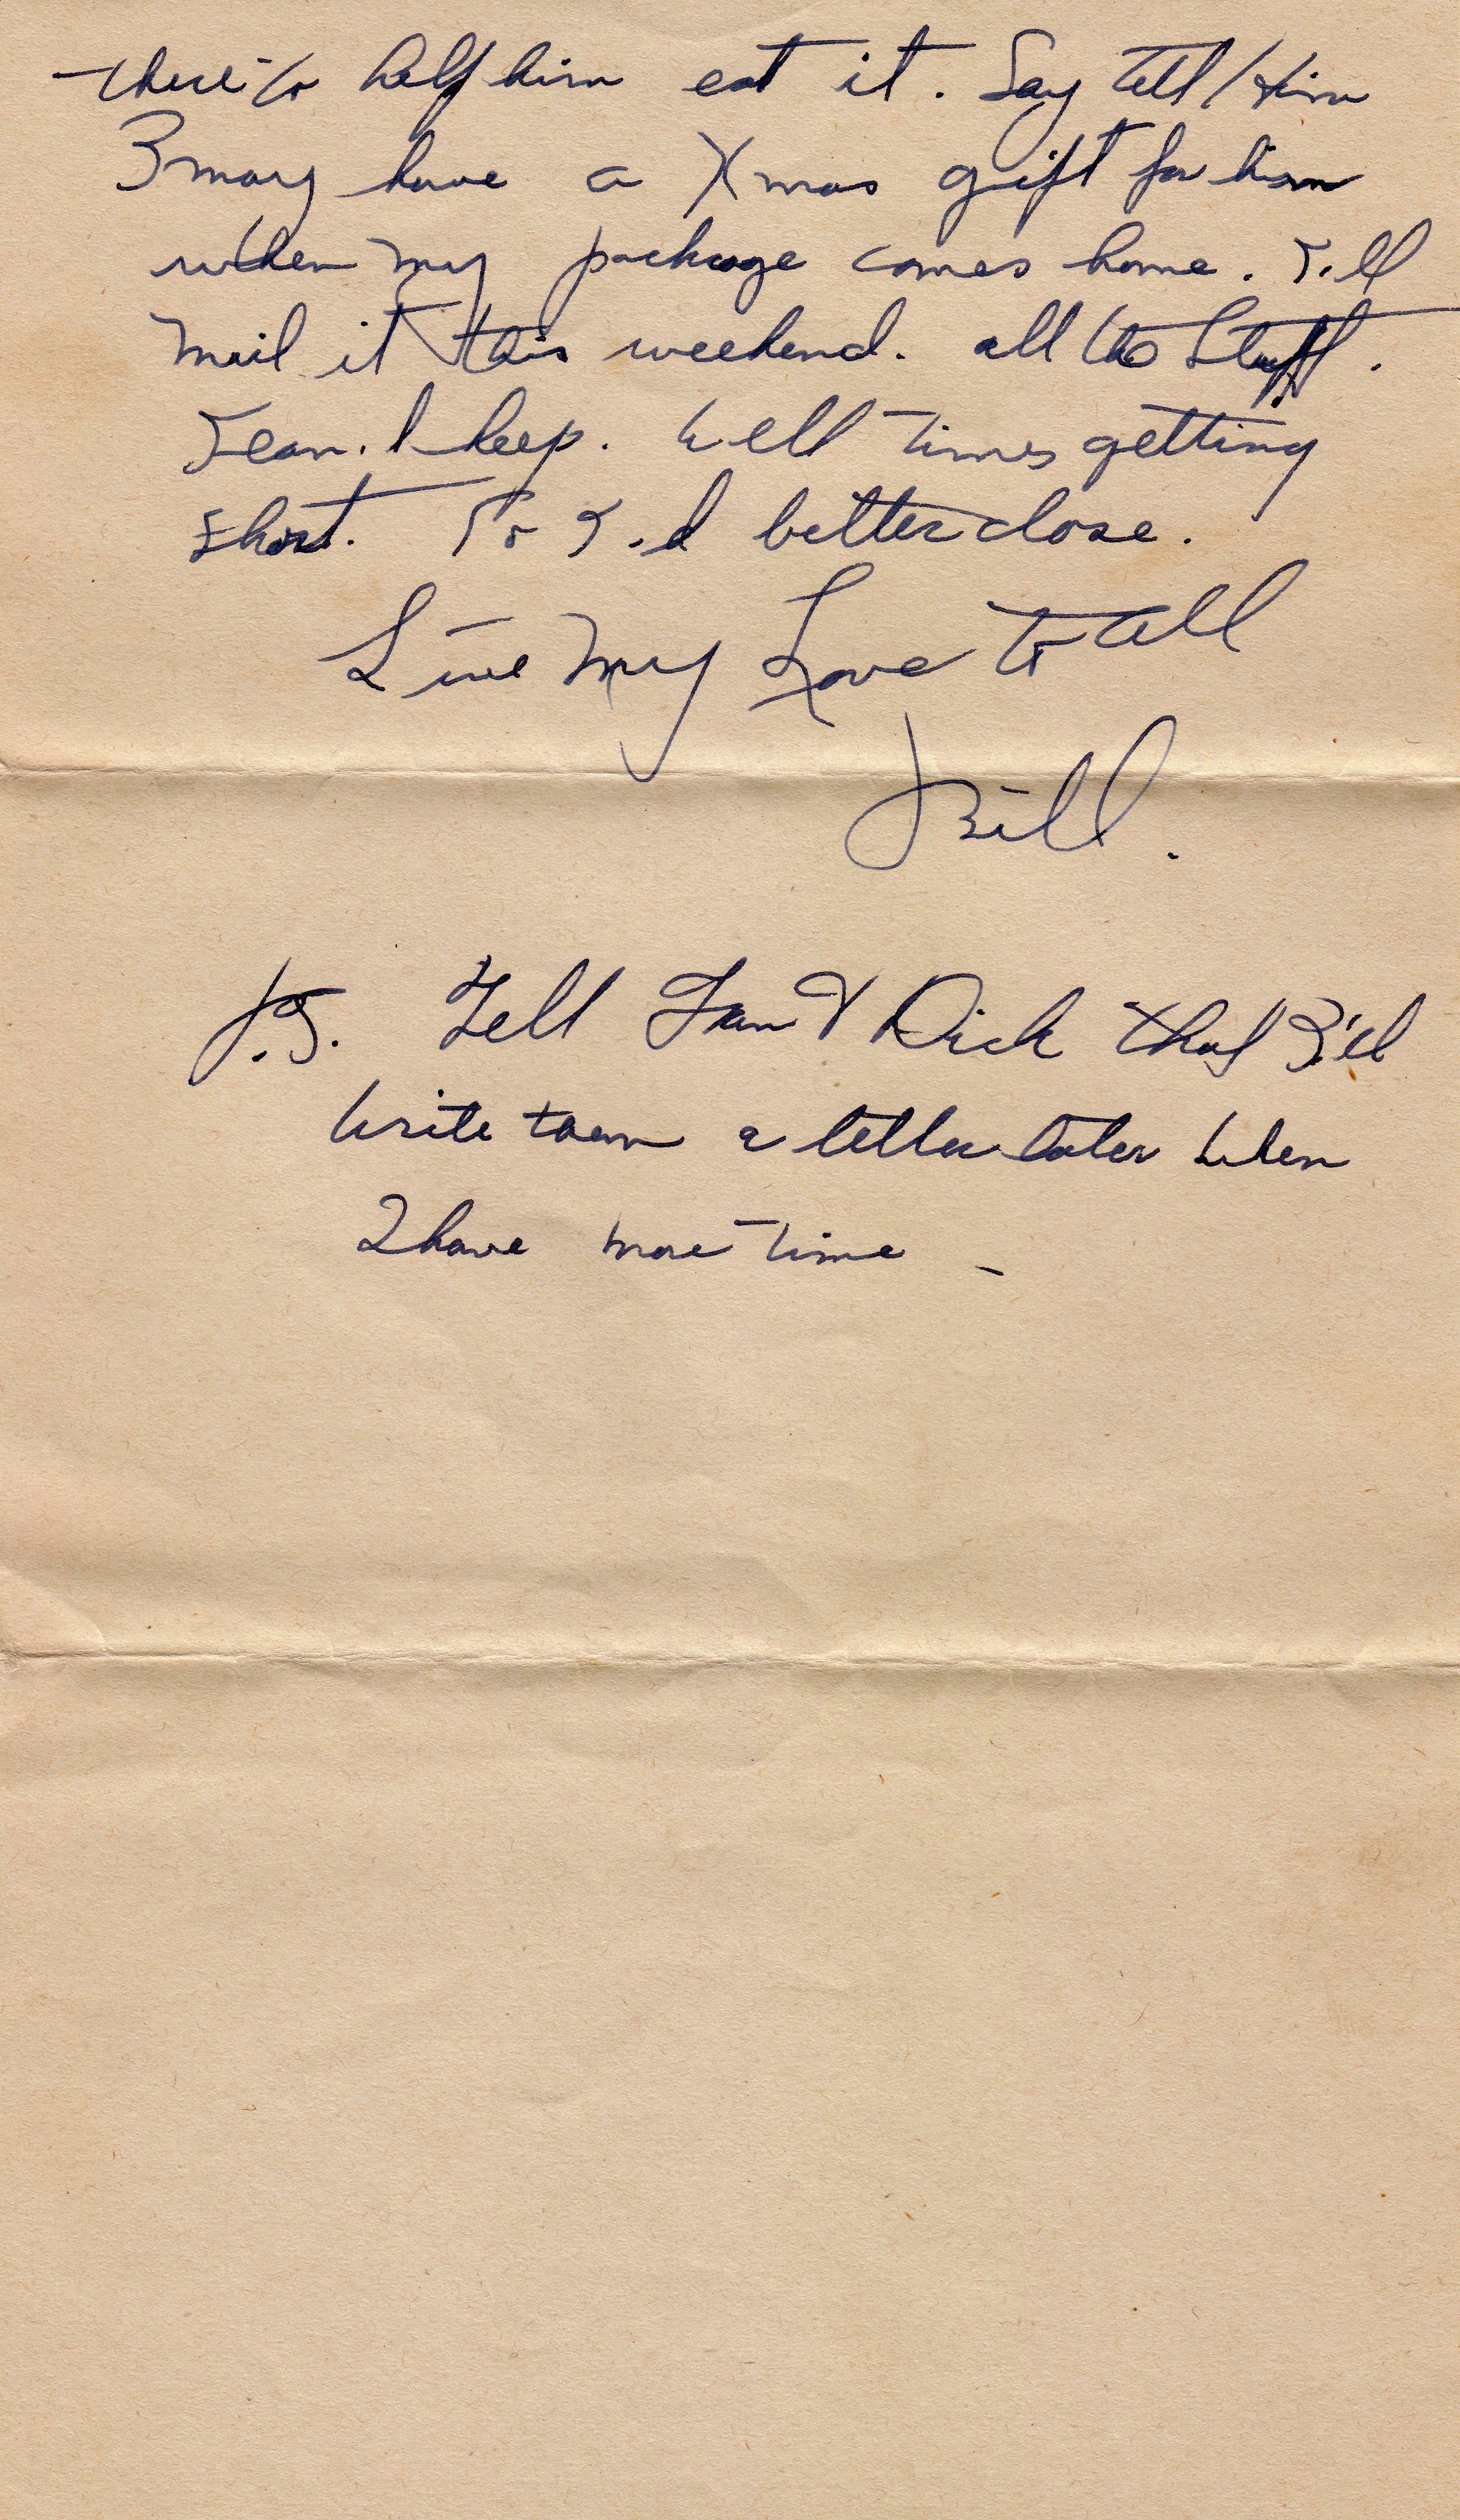 there to help him eat it. Say tell Him
I may have a Xmas gift for him
when my package comes home. I'll
mail it this weekend. all the stuff.
I can't keep. Well times getting
short. So I'd better close.
Give My Love to all
Bill.
P.S. Tell Fran & Dick that I'll
write them a letter later when
I have more time